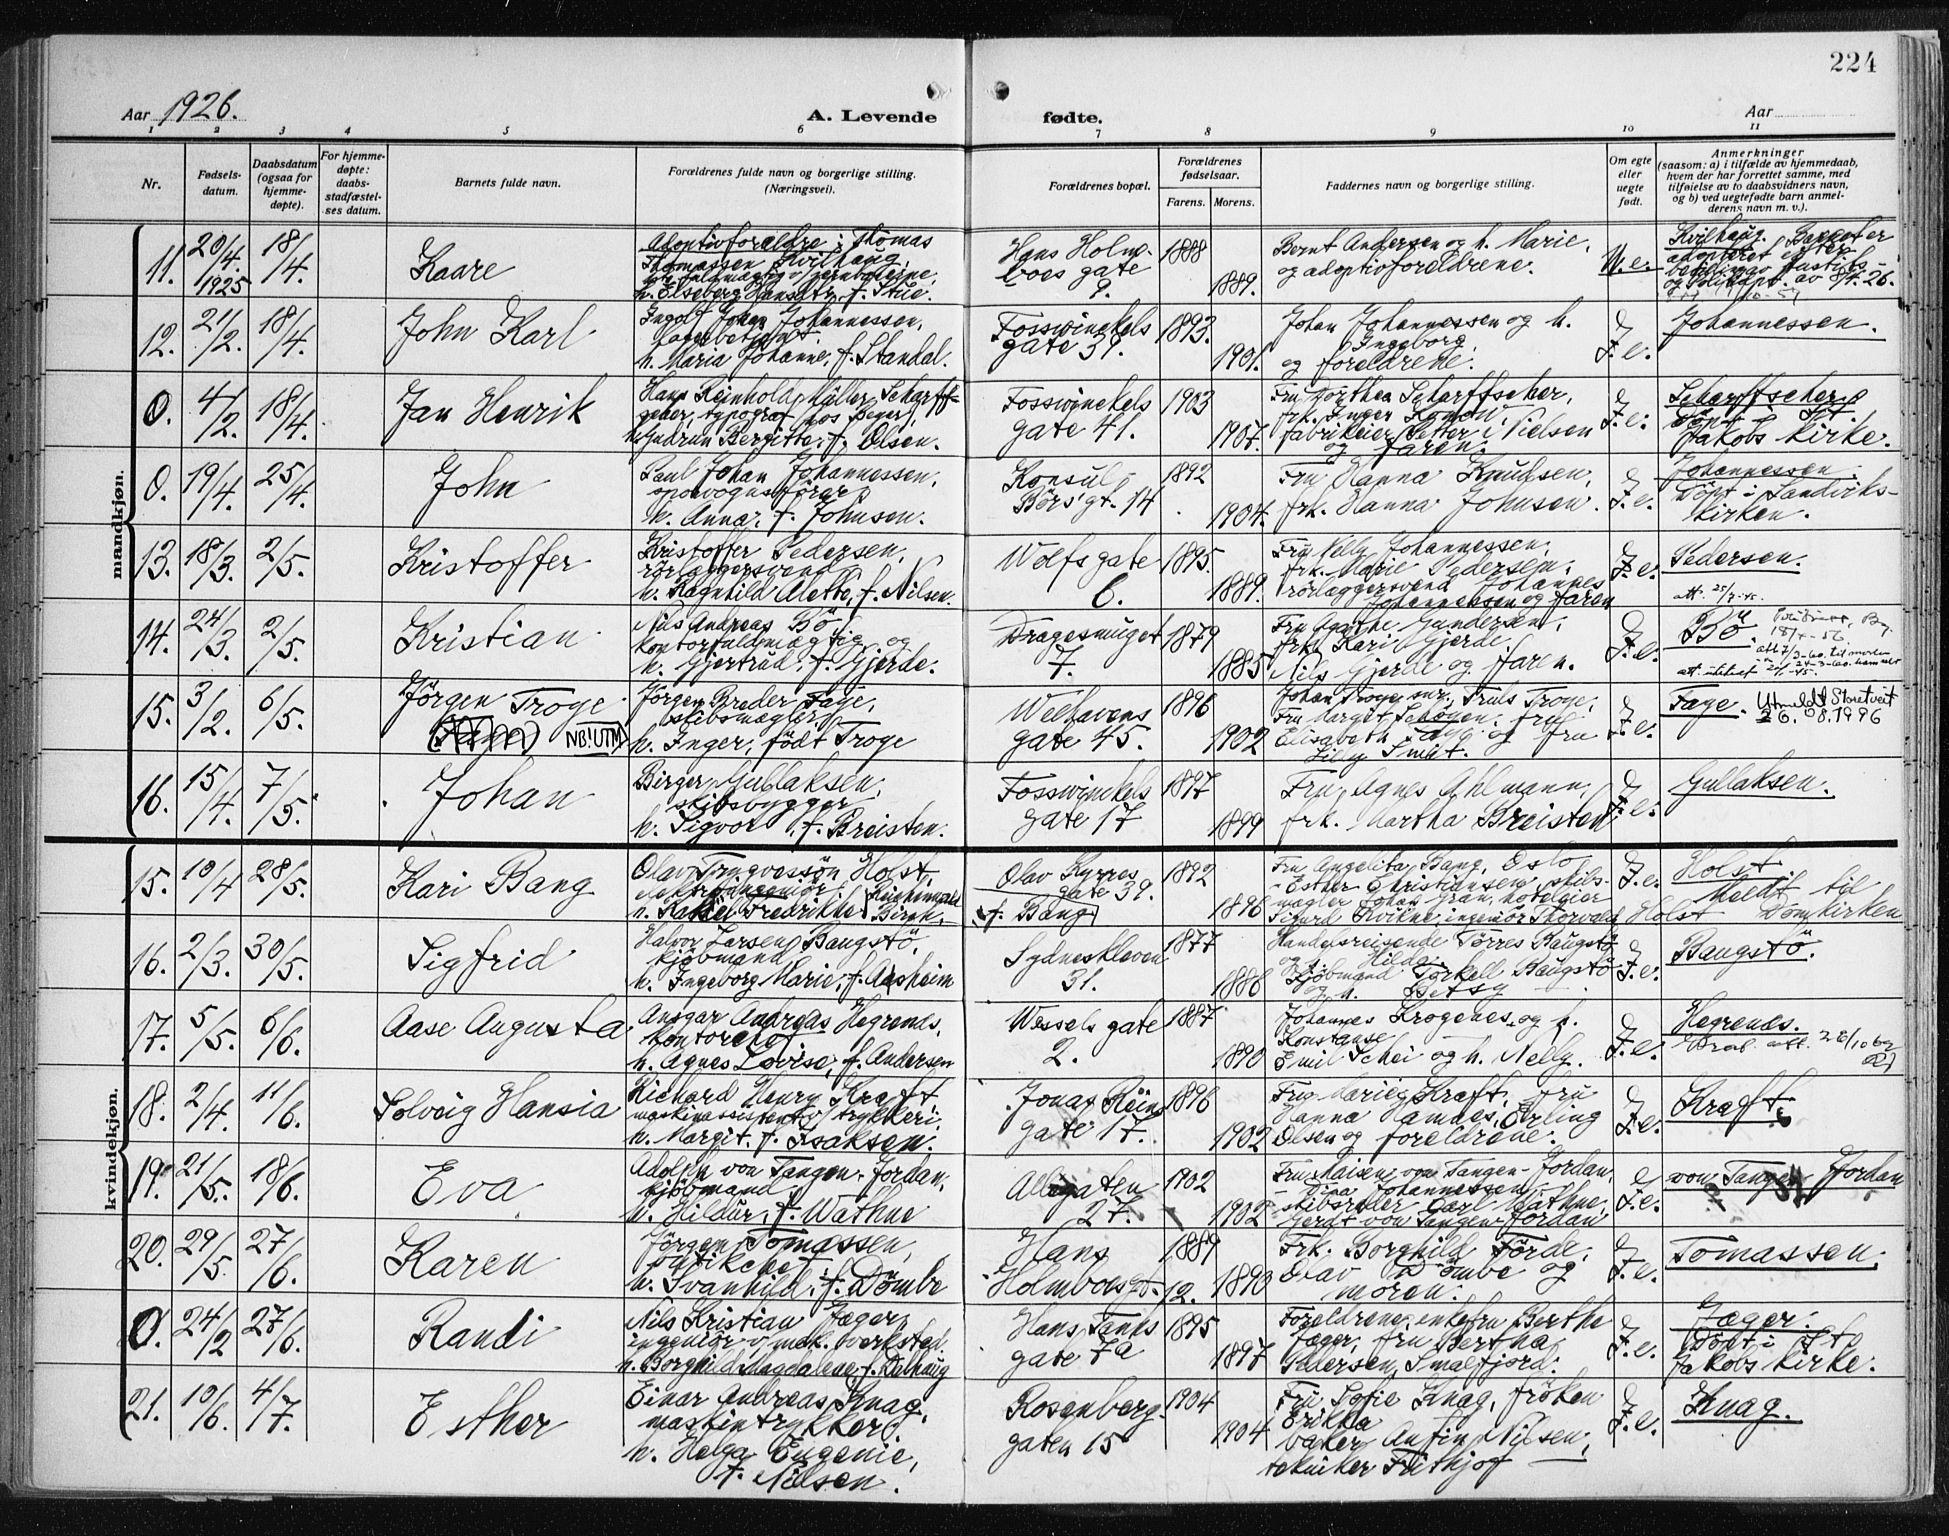 224
Aar 1926.
A. Levende
fødte.
Aar
1 2 3 4 5 6 7 8 9 10 11
Nr.
Fødsels-
datum.
Daabsdatum
(ogsaa for
hjemme-
døpte).
For hjemme-
døpte:
daabs-
stadfæstel-
ses datum.
Barnets fulde navn.
Forældrenes fulde navn og borgerlige stilling.
(Næringsvei).
Forældrenes bopæl.
Forældrenes
fødselsaar.
Farens. Morens.
Faddernes navn og borgerlige stilling.
Om egte
eller
uegte
født.
Anmerkninger
(saasom: a) i tilfælde av hjemmedaab,
hvem der har forrettet samme, med
tilføielse av to daabsvidners navn,
og b) ved uegtefødte barn anmel-
derens navn m. v.).
mandkjøn.
11. 20/4. 1925 18/4. Kaare
Adoptivforældre: Thomas
Thomassen Kvilhaug,
h. Elseberg Hansdtr, f. Stue.
Hans Holm-
boes gate
9.
1888
1889.
Bernt Andersen og h. Marie,
og adoptivforeldrene.
U. e.
Kvilhaug.
adopteret efter
og Politidept. av 8/4. 26.
12. 21/2. 18/4. John Karl
Ingolf Johan Johannessen,
h. Maria Johanne, f. Standal.
Fosswinckels
gate 39.
1893.
1901.
Johan Johannessen og h.
Ingeborg,
og foreldrene.
F. e.
Johannessen.
0. 4/2. 18/4. Jan Henrik
Hans Reinhold Müller Scharff-
scher, typograf hos Beyer,
h. Gudrun Bergitte, f. Olsen.
Fosswinckels
gate 41.
1903
1907.
Fru Dorthea Scharffscher,
frk. Inger
fabrikeier Petter i Nielsen
og faren.
F. e.
Scharffscher.
Döpt i St.
Jakobs kirke.
0. 19/4. 25/4. John
Paul Johan Johannessen,
sporvognsförer
h. Anna, f. Johnsen.
Konsul
Börs' gt. 14
1892
1904.
Fru Hanna Knudsen,
frk. Hanna Johnsen.
F. e.
Johannessen.
Döpt i Sandviks-
kirken.
13. 18/3. 2/5. Kristoffer
Kristoffer Pedersen,
rörlæggersvend
h. Ragnhild Alette, f. Nilsen.
Wolfs gate
6.
1895.
1889.
Fru Nelly Johannessen,
frk. Marie Pedersen,
rörlæggersvend Johannes
Johannessen og faren
F. e.
Pedersen.
14. 24/3. 2/5. Kristian
Nils Andreas Bö,
kontorfuldmægtig, og
h. Gjertrud, f. Gjerde.
Dragesmuget
7.
1879
1885
Fru Agathe Gundersen,
frk. Kari Gjerde,
Nils Gjerde og faren.
F. e.
Bö.
15. 3/2. 6/5. Jörgen Troye
NB! UTM
Jörgen Breder Faye,
skibsmægler,
h. Inger, född Troye
Welhavens
gate 45.
1896
1902
Johan Troye snr, Truls Troye,
Fru Marget Schögen, fru
Elisabeth Faye og fru
Lilly Smit.
F. e.
Faye. Utmeldt Storetveit
26. 08. 1996
16. 15/4. 7/5. Johan
Birger Gullaksen,
skibsbygger
h. Sigvor, f. Breisten.
Fosswinckels
gate 17
1897
1899
Fru Agnes Ahlmann,
frk. Martha Breisten
F. e.
Gullaksen.
kvindekjøn.
15. 10/4 28/5. Kari Bang
Olav Trygvessön Holst,
elektroingeniör
h. Fredrikke
Olav Kyrres
gate 39.
f. Bang
1892
1896
Fru Angelita Bang, Oslo
Esther Christiansen, skibs-
mægler Johan Gran, hotelgier
Sigurd Kvikne, ingeniör Thorvald Holst
F. e.
Holst
Meldt til
Domkirken
16. 2/3. 30/5. Sigfrid
Halvor Larsen Baugstö,
kjöbmand
h. Ingeborg Marie, f. Aasheim
Sydneskleven
31.
1877
1886
Handelsreisende Törres Baugstö
og h. Hilda
Kjöbmand Torkell Baugstö
og h. Betsy
F. e.
Baugstö.
17. 5/5. 6/6. Aase Augusta
Ansgar Andreas Hegrenæs,
kontorchef
h. Agnes Lovise, f. Andersen
Wessels gate
2.
1887
1890
Johannes Krogenes og h.
Konstanse
Emil Schei og h. Nelly.
F. e.
Hegrenæs.
18. 2/4. 11/6. Solveig Hansia
Richard Henry Kraft
maskinassistent v/ trykkeri,
h. Margit, f. Isaksen.
Jonas Reins
gate 17.
1896
1902
Fru Marie Kraft, fru
Hanna Hamaes, Erling
Olsen og foreldrene.
F. e.
Kraft.
19. 21/5. 18/6. Eva
Adolph von Tangen-Jordan,
kjöbmand
h. Hildur, f. Wathne
Allégaten
27.
1902
1902
Fru Maisen von Tangen-Jordan,
Dina Johannessen
skibsreder Carl Wathne,
Gerdt von Tangen-Jordan
F. e.
von Tangen Jordan
20. 29/5. 27/6. Karen
Jörgen Tomassen,
butikchef,
h. Svanhild, f. Dömbe
Hans
Holmboesgt. 12.
1889
1890
Frk. Borghild Förde,
Olav Dömbe og
moren.
F. e.
Tomassen.
0. 24/2 27/6. Randi
Nils Kristian Jæger,
ingeniör v/ mek. verksted.
h. Borghild Magdalene, f. Dalhaug
Hans Tanks
gate 7a
1895
1897
Foreldrene, enkefru Berthe
Jæger, fru Bertha
Pedersen, Smalfjord.
F. e.
Jæger.
Döpt i St.
Jakobs kirke.
21. 10/6. 4/7. Esther
Einar Andreas Knag,
maskintrykker.
h. Helga Eugenie,
f. Nielsen.
Rosenberg-
gaten 15
1904
1904
Fru Sofie Knag, fröken
Erikka
baker Anfin Nilsen,
tekniker Frithjof
F. e.
Knag.